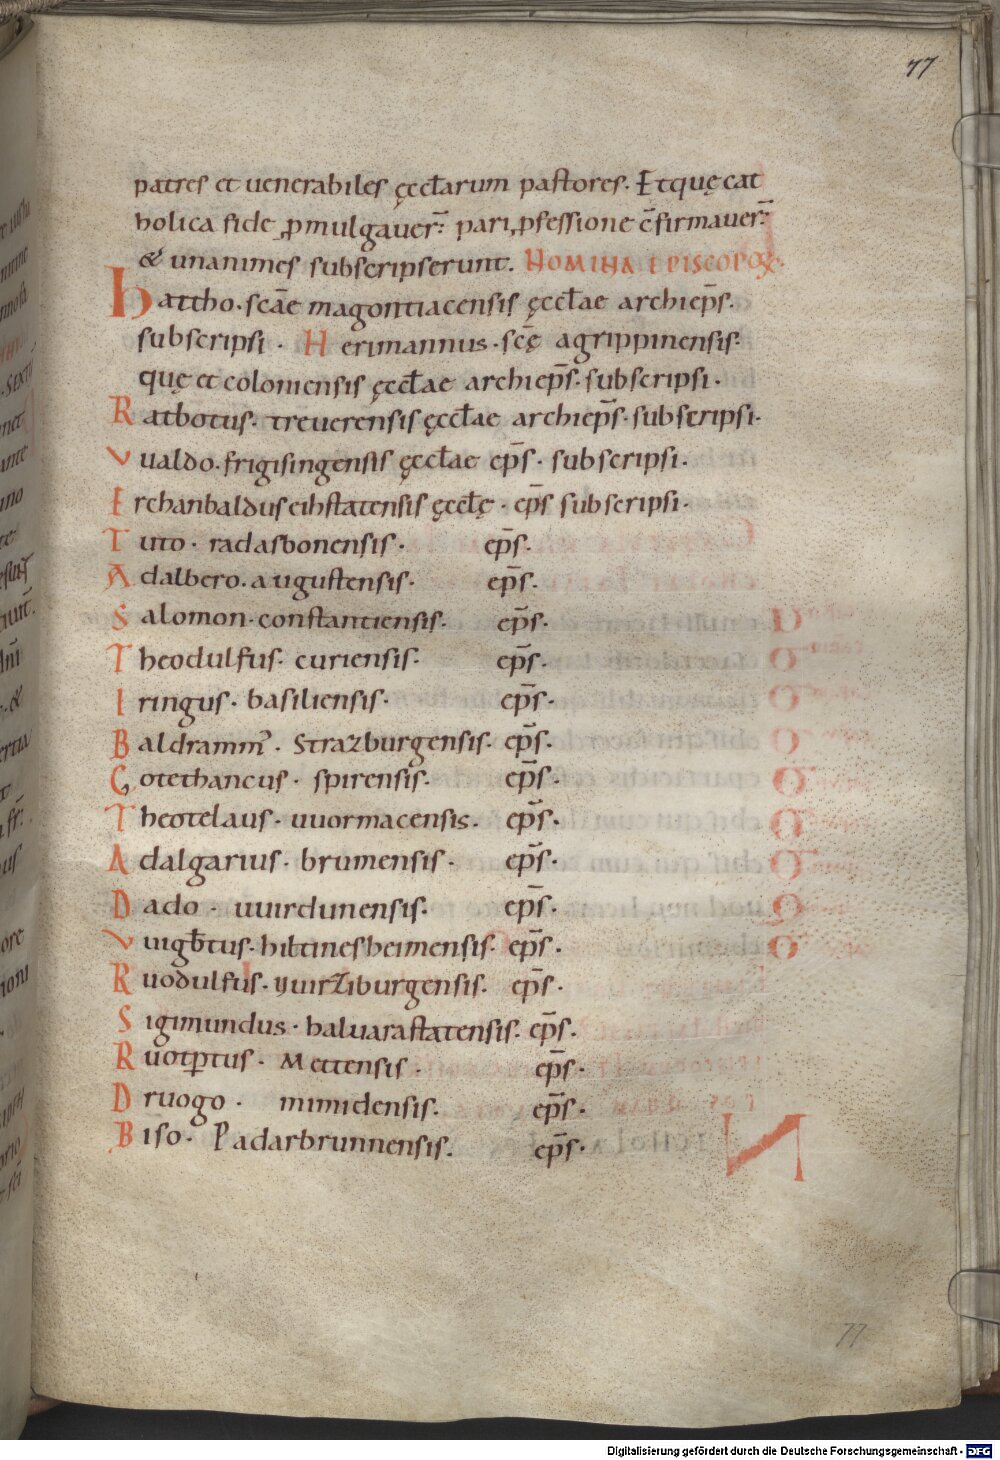 77
patres et uenerabiles ęcct̄arum pastores. Et quę cat
holica fide ꝓmulgauer̄: pari ꝓfessione c̄firmauer̄:
& unanimes subscripserunt. NOMINA EPISCOPOꝜ.
Hattho. scāe magontiacensis ęcct̄ae archiep̄s.
subscripsi. Herimannus. sc̄ę agrippinensis.
quę et coloniensis ęcct̄ae archiep̄s. subscripsi.
Ratbotus. treuerensis ęcct̄ae archiep̄s. subscripsi.
Vualdo. frigisingensis ęcct̄ae ep̄s. subscripsi.
Erchanbaldus eihstatensis ęcct̄ę. ep̄s subscripsi.
Tuto. radasbonensis. ep̄s.
Adalbero. augustensis. ep̄s.
Salomon. constantiensis. ep̄s.
Theodulfus. curiensis. ep̄s.
Iringus. basiliensis. ep̄s.
Baldramm᾿. Strazburgensis. ep̄s.
Gotethancus. spirensis. ep̄s.
Theotelaus. uuormacensis. ep̄s.
Adalgarius. brumensis. ep̄s.
Dado. uuirdunensis. ep̄s.
Vuigb̄tus. hiltinesheimensis. ep̄s.
Ruodulfus. uuirziburgensis. ep̄s.
Sigimundus. haluarastatensis. ep̄s.
Ruotꝑtus. Mettensis. ep̄s.
Druogo. mimidensis. ep̄s.
Biso. Padarbrunnensis. ep̄s.
77
Digitalisierung gefördert durch die Deutsche Forschungsgemeinschaft - DFG